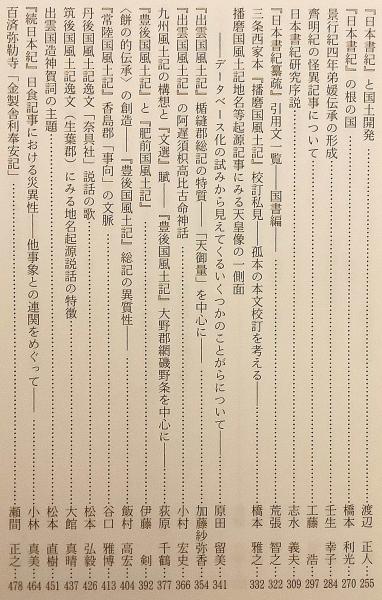 『日本書紀』と国土開発……………渡辺 正人… 255
『日本書紀』の根の国……………橋本 利光… 270
景行紀四年弟媛伝承の形成……………壬生 幸子… 284
齊明紀の怪異記事について……………工藤 浩… 297
日本書紀研究序説……………志水 義夫… 309
『日本書紀纂疏』引用文一覧 国書編……………荒張 智之… 322
三条西家本『播磨国風土記』校訂私見 孤本の本文校訂を考える……………橋本 雅之… 332
播磨国風土記地名等起源記事にみる天皇像の一側面
データベース化の試みから見えてくるいくつかのことがらについて――……………原田 留美… 341
『出雲国風土記』楯縫郡総記の特質――「天御量」を中心に――……………加藤紗弥香… 354
『出雲国風土記』の阿遅須枳高比古命神話……………小村 宏史… 366
九州風土記の構想と『文選』賦――『豊後国風土記』大野郡網磯野条を中心に――……………荻原 千鶴… 377
『豊後国風土記』と『肥前国風土記』……………伊藤 剣… 392
〈餅の的伝承〉の創造――『豊後国風土記』総記の異質性――……………飯村 高宏… 404
『常陸国風土記』香島郡「事向」の文脈……………谷口 雅博… 413
丹後国風土記逸文「奈具社」説話の歌……………松本 弘毅… 426
筑後国風土記逸文（生葉郡）にみる地名起源説話の特徴……………大館 真晴… 437
出雲国造神賀詞の主題……………松本 直樹… 451
『続日本紀』日食記事における災異性――他事象との連関をめぐって――……………小林 真美… 464
百済弥勒寺「金製舎利奉安記」……………瀬間 正之… 478